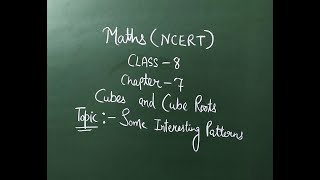 Maths (NCERT)
CLASS - 8
Chapter - 7
Cubes and Cube Roots
Topic :- Some Interesting Patterns